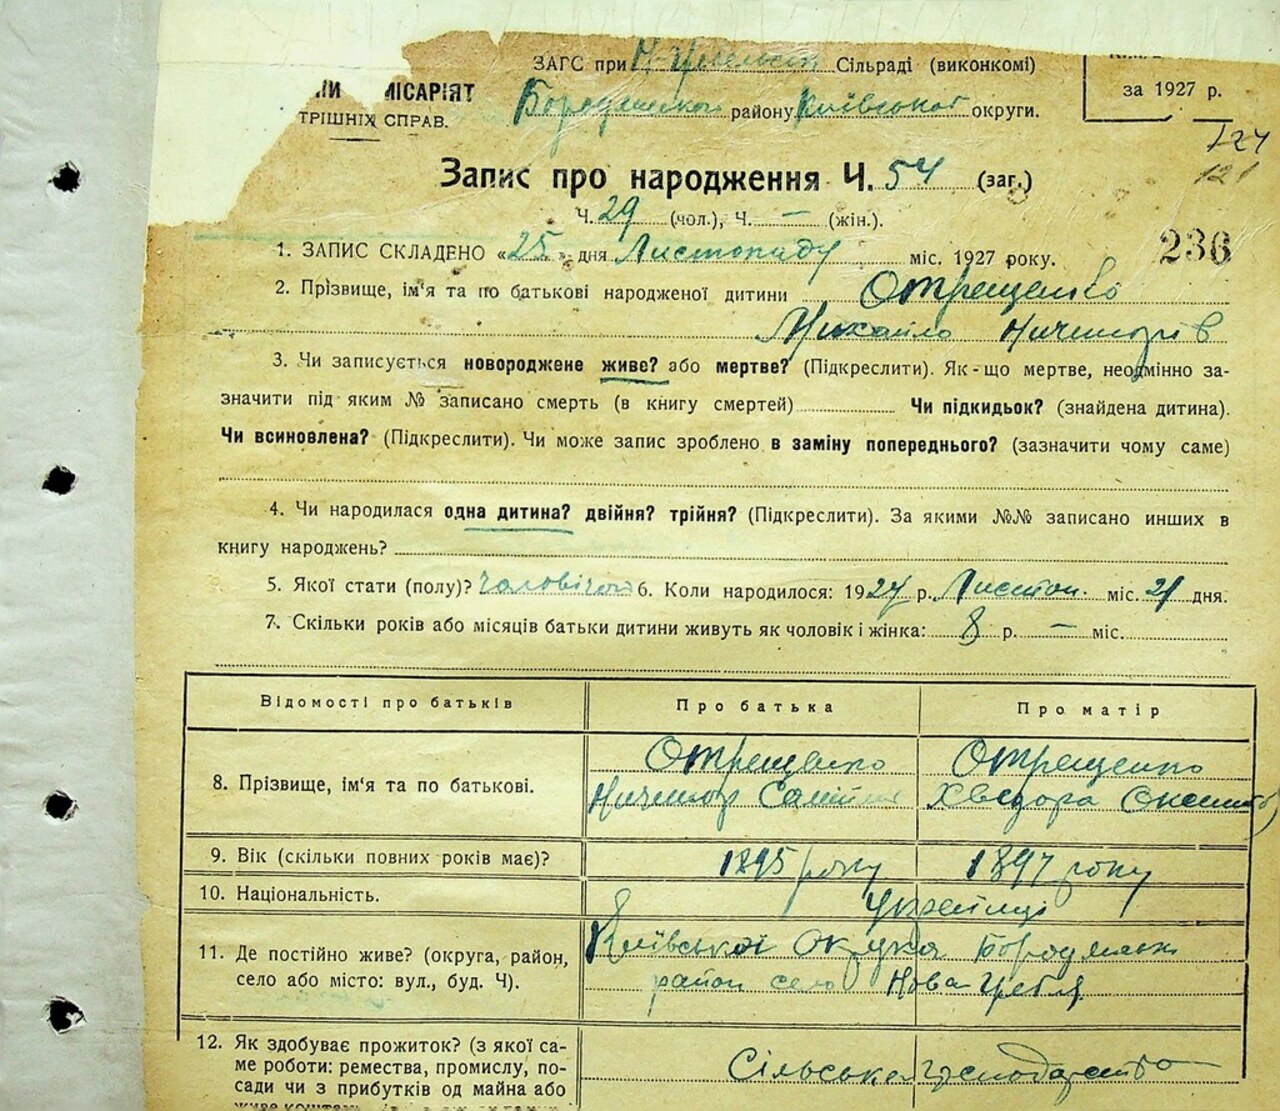 ЗАГС при Н-Гребельск Сільраді (виконкомі)
МІСАРІЯТ
за 1927 р.
Бородянского району Київської округи.
ТРІШНІХ СПРАВ.
124
121
Запис про народження Ч. 54 (заг.)
Ч. 29 (чол.), Ч. — (жін.).
236
1. ЗАПИС СКЛАДЕНО «25» дня Листопаду міс. 1927 року.
2. Прізвище, ім'я та по батькові народженої дитини Отрещенко
Михайло Ничипорів
3. Чи записується новороджене живе? або мертве? (Підкреслити). Як-що мертве, неодмінно за-
значити під яким № записано смерть (в книгу смертей) Чи підкидьок? (знайдена дитина).
Чи всиновлена? (Підкреслити). Чи може запис зроблено в заміну попереднього? (зазначити чому саме)
4. Чи народилася одна дитина? двійня? трійня? (Підкреслити). За якими №№ записано инших в
книгу народжень?
5. Якої стати (полу)? чоловічої 6. Коли народилося: 1927 р. Листоп. міс. 21 дня.
7. Скільки років або місяців батьки дитини живуть як чоловік і жінка: 8 р. — міс.
Відомості про батьків Про батька Про матір
Отрещенко Отрещенко
8. Прізвище, ім'я та по батькові. Ничипор Самійл Хведора
9. Вік (скільки повних років має)? 1895 року 1897 року
10. Національність. Українці
Київської Округа Бородянськ
11. Де постійно живе? (округа, район,
село або місто: вул., буд. Ч). район село Нова Гребля
12. Як здобуває прожиток? (з якої са-
ме роботи: ремества, промислу, по- Сільське господарство
сади чи з прибутків од майна або